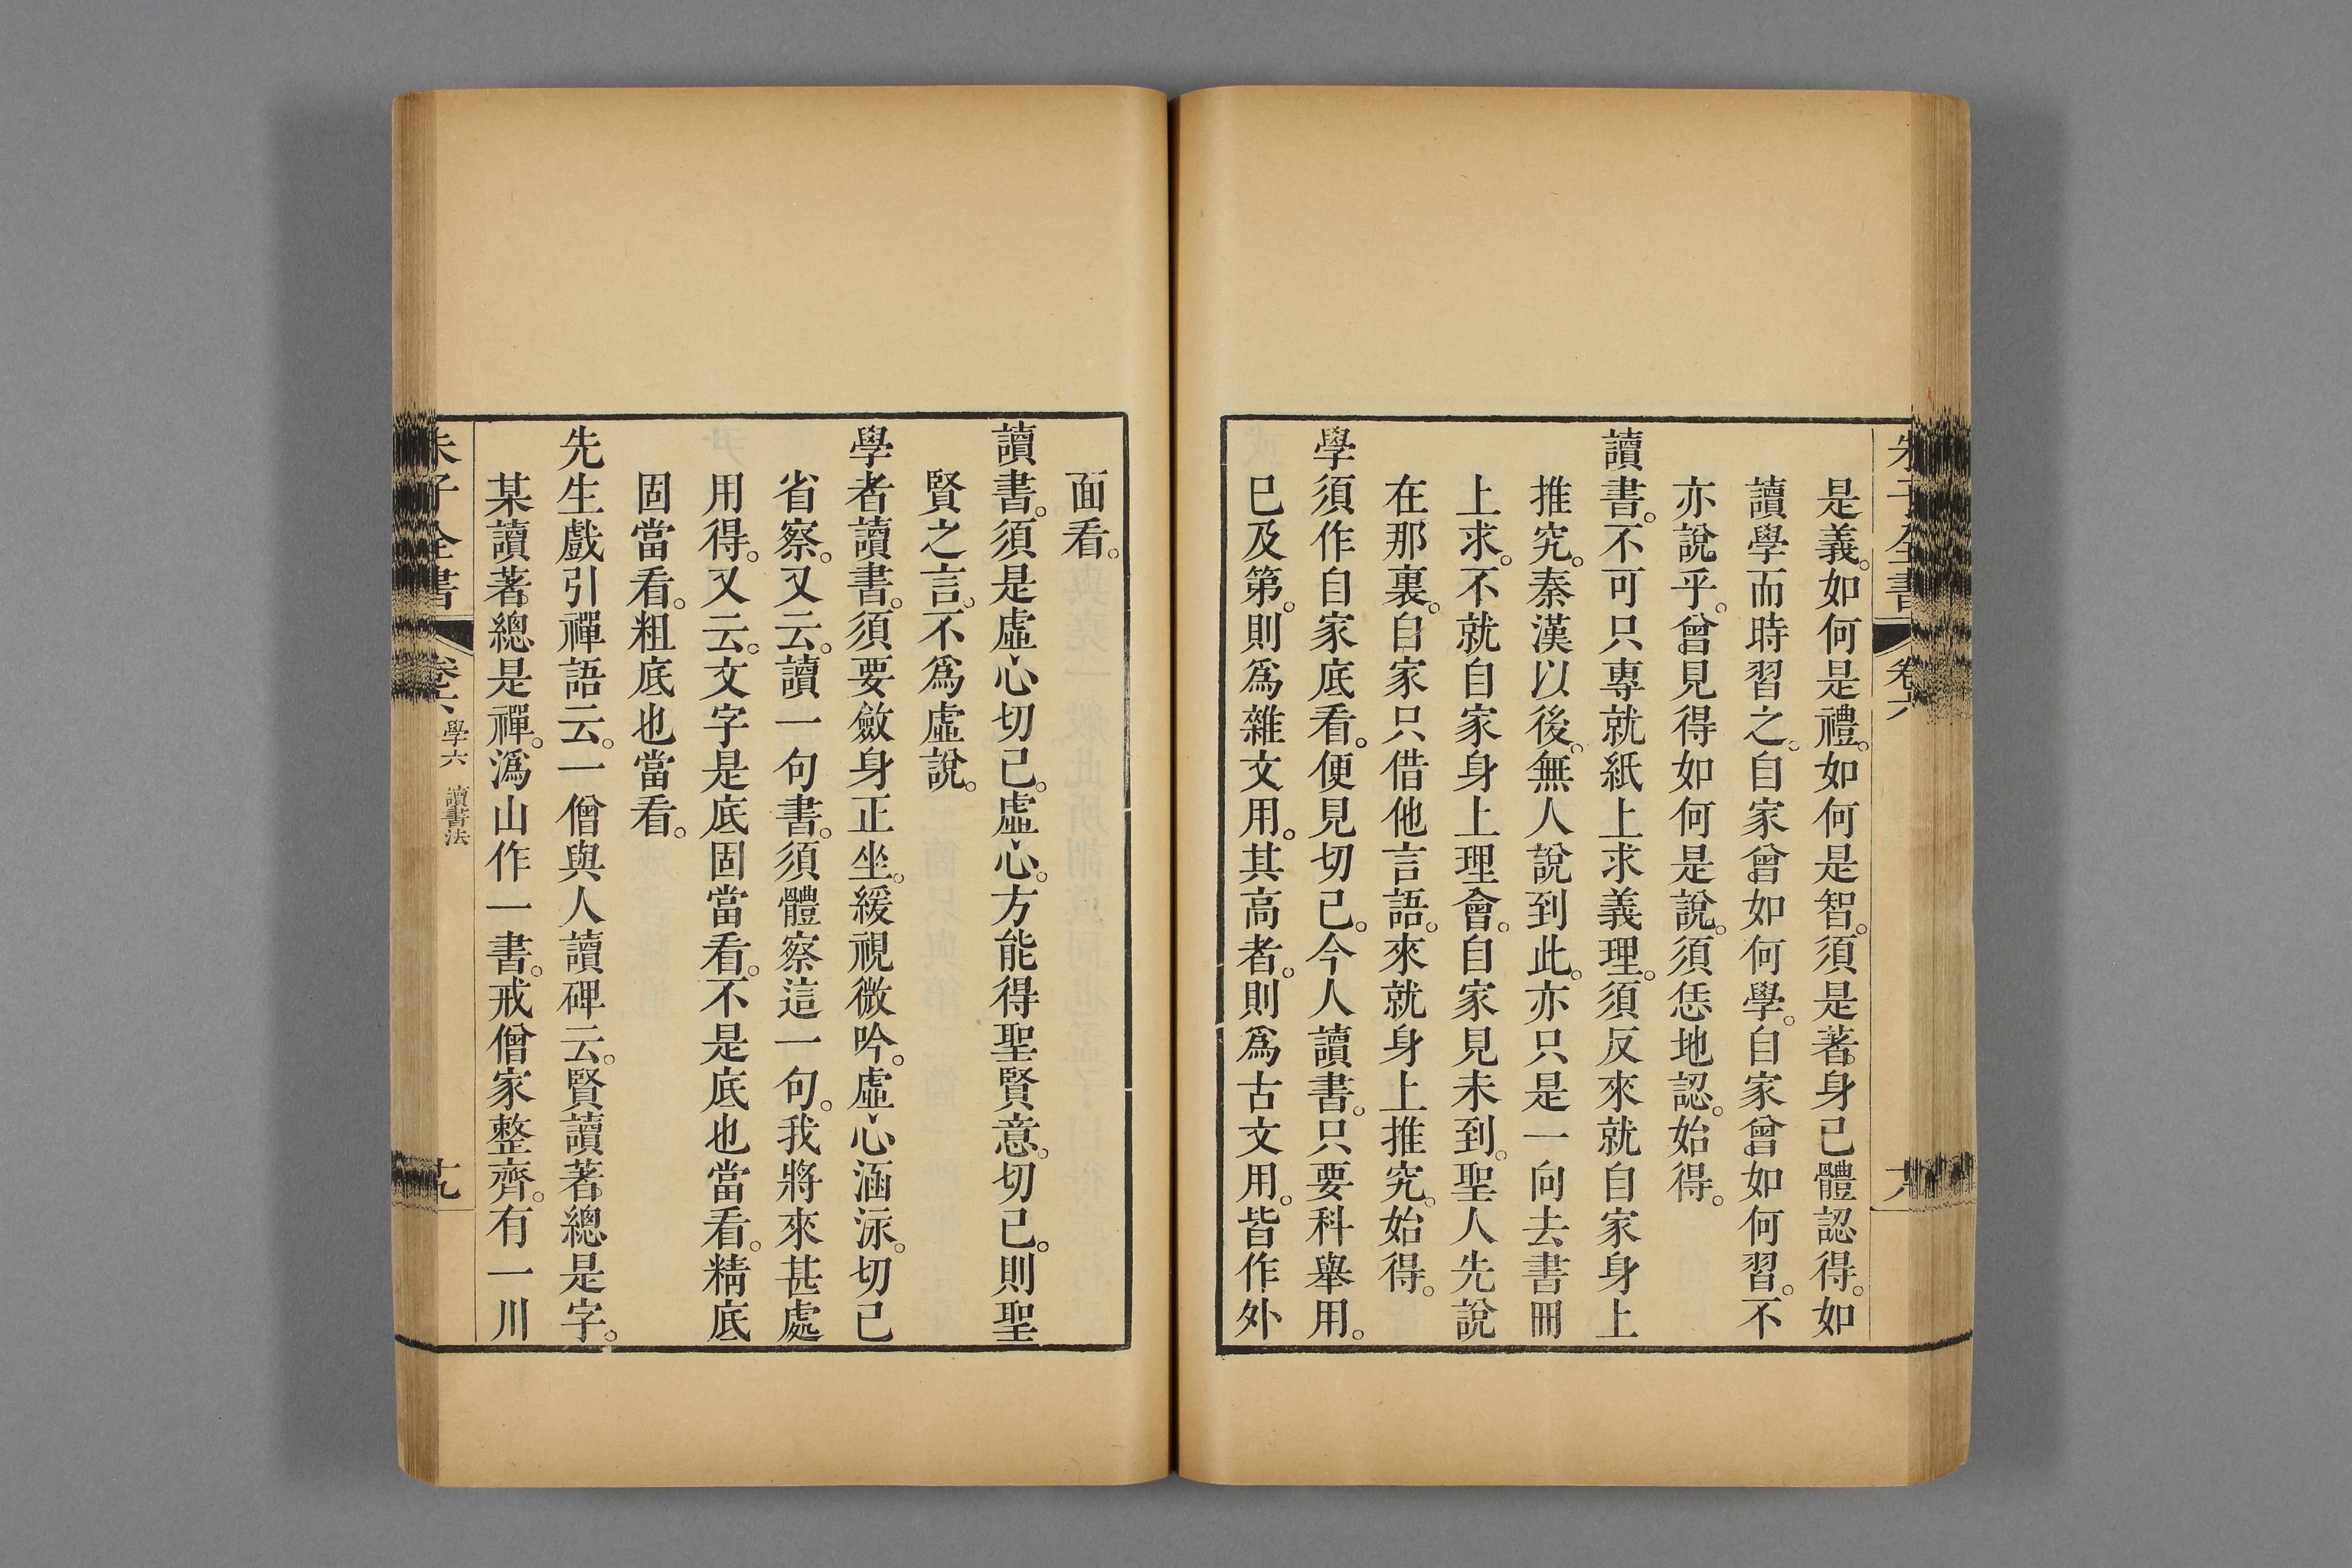 朱子全書 卷六 大
是義。如何是禮。如何是智。須是著身己體認得。如
讀學而時習之。自家曾如何學。自家曾如何習。不
亦說乎。曾見得如何是說。須恁地認。始得。
讀書。不可只專就紙上求義理。須反來就自家身上
推究。秦漢以後。無人說到此。亦只是一向去書冊
上求。不就自家身上理會。自家見未到。聖人先說
在那裏。自家只借他言語。來就身上推究。始得。
學須作自家底看。便見切己。今人讀書。只要科舉用。
已及第。則爲雜文用。其高者。則爲古文用。皆作外
面看。
讀書。須是虛心切己。虛心。方能得聖賢意。切己。則聖
賢之言。不爲虛說。
學者讀書。須要斂身正坐。緩視微吟。虛心涵泳。切己
省察。又云。讀一句書。須體察這一句。我將來甚處
用得。又云。文字是底固當看。不是底也當看。精底
固當看。粗底也當看。
先生戲引禪語云。一僧與人讀碑云。賢讀著總是字。
某讀著總是禪。潙山作一書。戒僧家整齊。有一川
朱子全書 卷六 學六 讀書法 十九